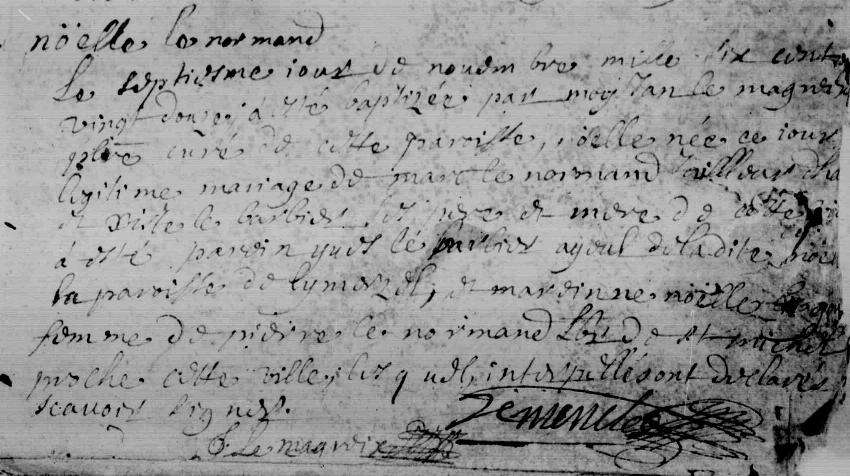 nöelle le normand
Le septiesme iour de nouembre mille six cent
vingt douze, a esté baptizée par moy Jan le magueix
pbre curé de cette paroisse, nöelle née ce iour
legitime mariage de marc le normand tailleur
et le barbier ses pere et mere de cette
a esté parein yues le barbier ayeul de ladite nöe
la paroisse de et mareinne nöelle
femme de pierre le normand de St michel
proche cette ville, lesquels interpellés ont declarés
scauoir signer.
J Le magueix